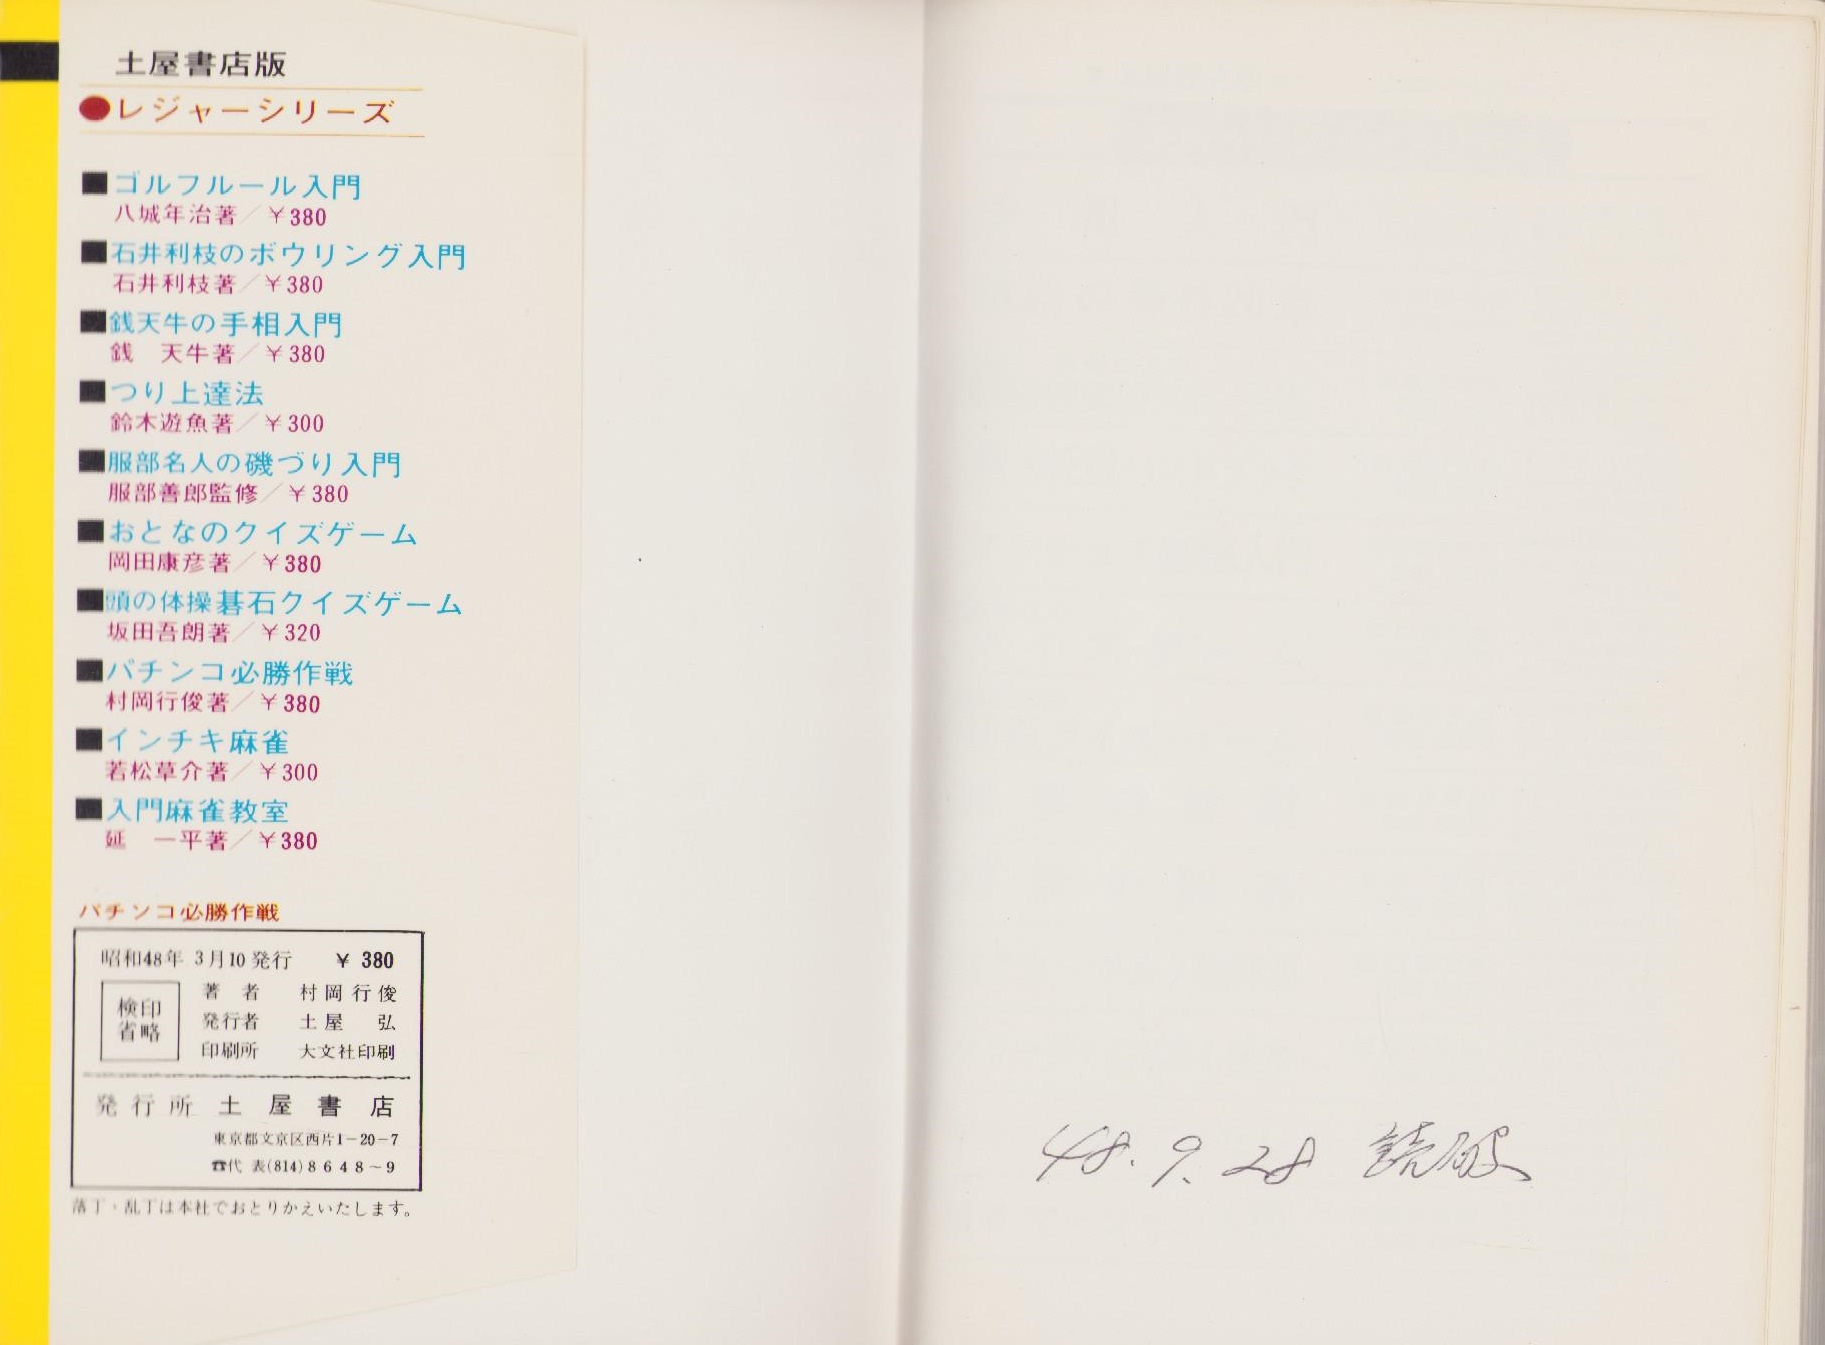 土屋書店版
●レジャーシリーズ
■ゴルフルール入門
八城年治著／￥380
■石井利枝のボウリング入門
石井利枝著／￥380
■銭天牛の手相入門
銭　天牛著／￥380
■つり上達法
鈴木遊魚著／￥300
■服部名人の磯づり入門
服部善郎監修／￥380
■おとなのクイズゲーム
岡田康彦著／￥380
■頭の体操碁石クイズゲーム
坂田吾朗著／￥320
■パチンコ必勝作戦
村岡行俊著／￥380
■インチキ麻雀
若松草介著／￥300
■入門麻雀教室
延　一平著／￥380
パチンコ必勝作戦
昭和48年 3月10発行　￥ 380
検印
省略
著　者　村岡行俊
発行者　土屋　弘
印刷所　大文社印刷
発行所　土屋書店
東京都文京区西片1－20－7
☎代 表(814)8648～9
落丁・乱丁は本社でおとりかえいたします。
48. 9. 28 読破